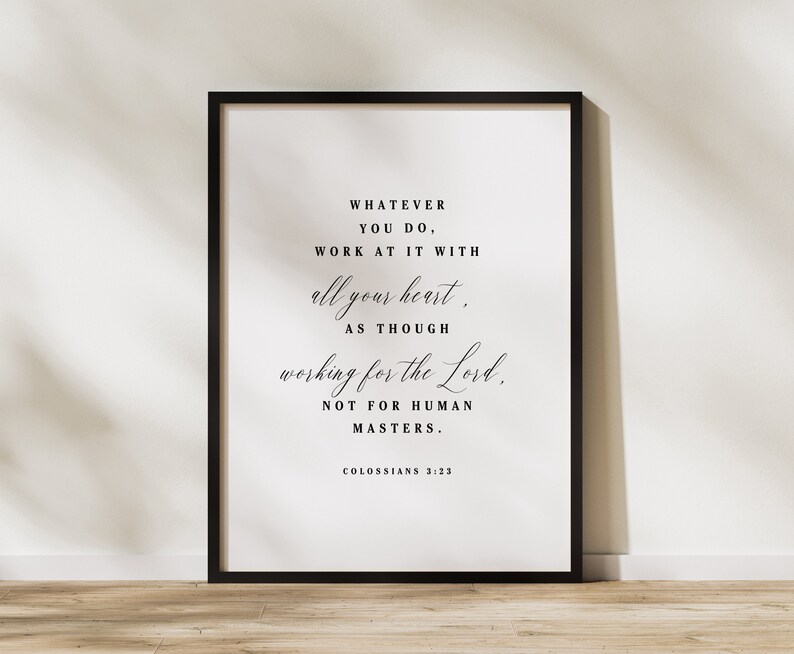 WHATEVER
YOU DO,
WORK AT IT WITH
all your heart,
AS THOUGH
working for the Lord,
NOT FOR HUMAN
MASTERS.
COLOSSIANS 3:23